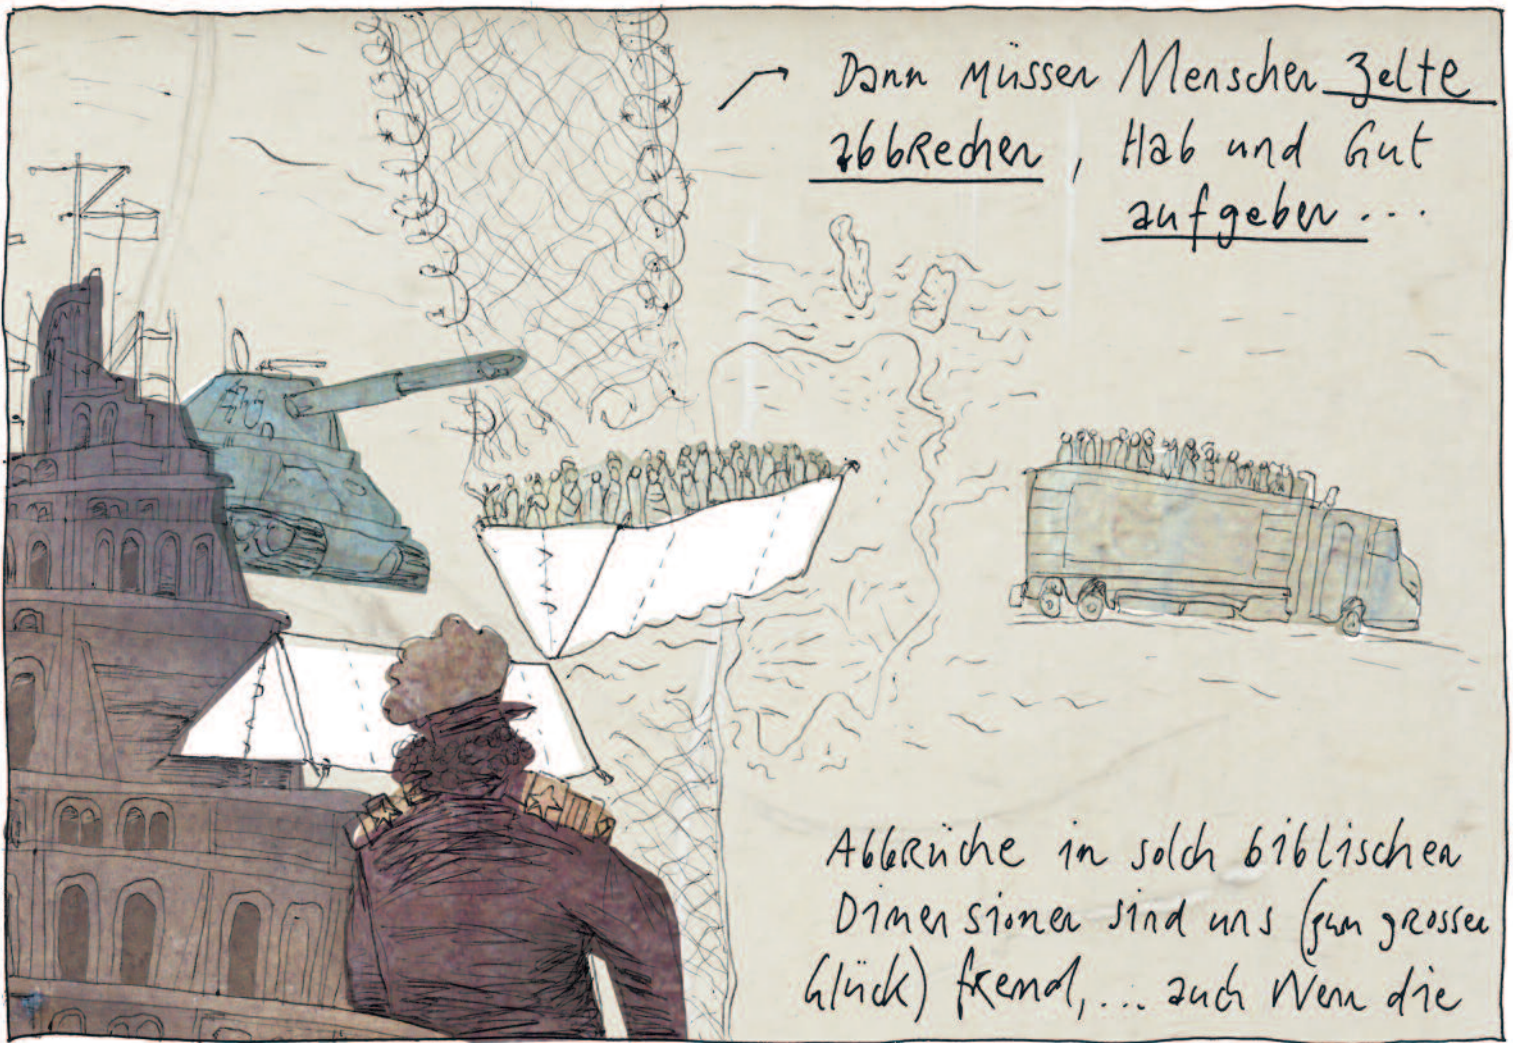 Dann müssen Menschen Zelte
abbrechen, Hab und Gut
aufgeben...
Abbrüche in solch biblischen
Dimensionen sind uns (zum grossen
Glück) fremd,... auch wenn die